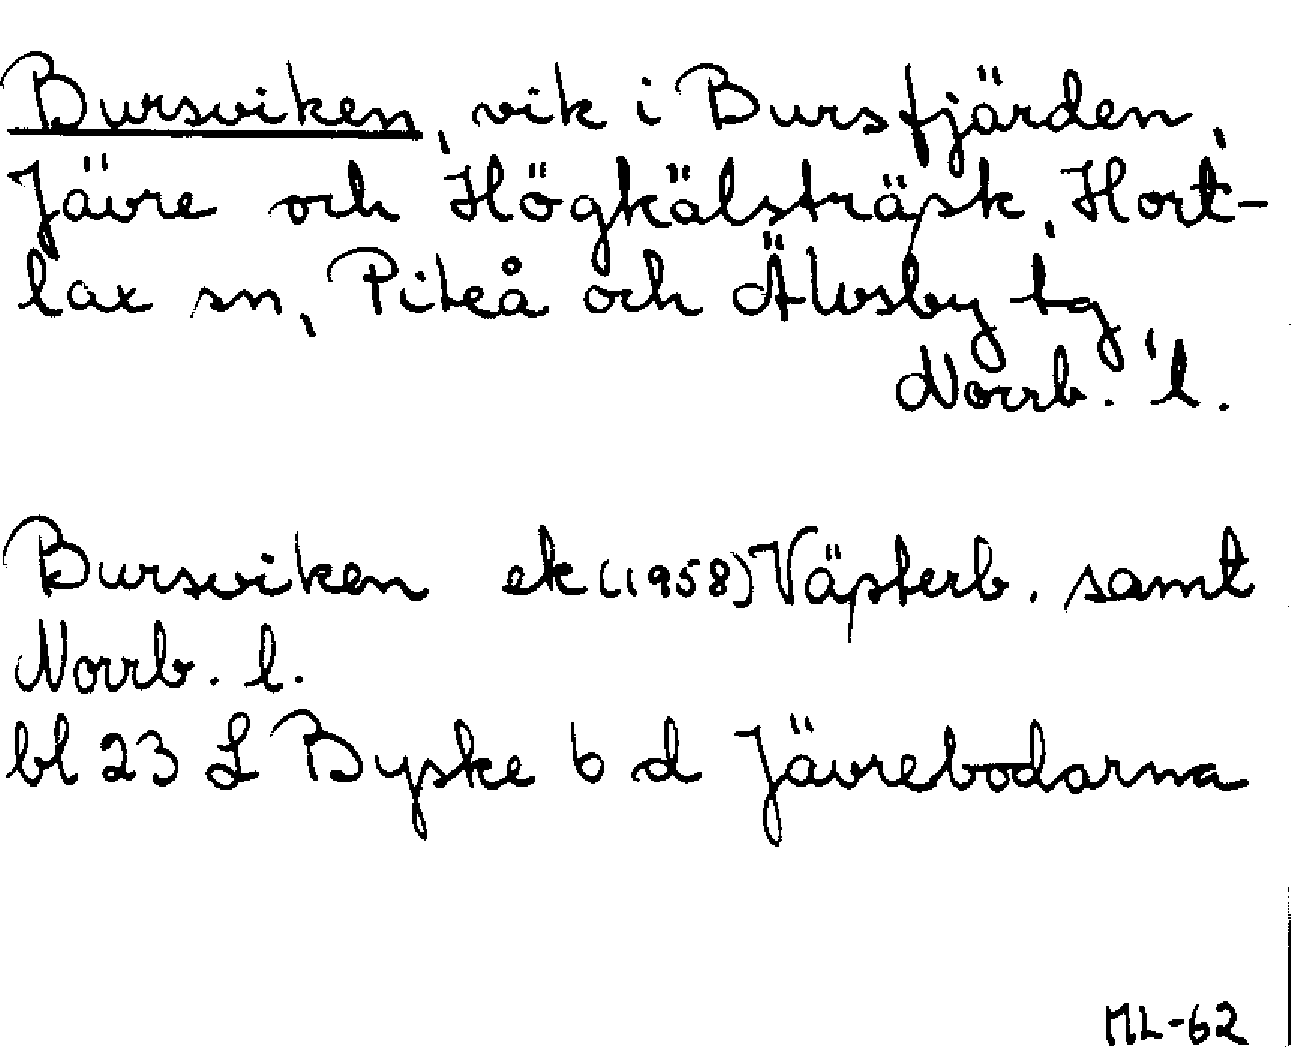 Bursviken, vik i Bursfjärden,
Jävre och Högkälsträsk, Hort-
lax sn, Piteå och Älvsby tg,
Norrb. l.
Bursviken ek (1958) Västerb. samt
Norrb. l.
bl 23 L Byske 6 d Jävrebodarna
ML-62